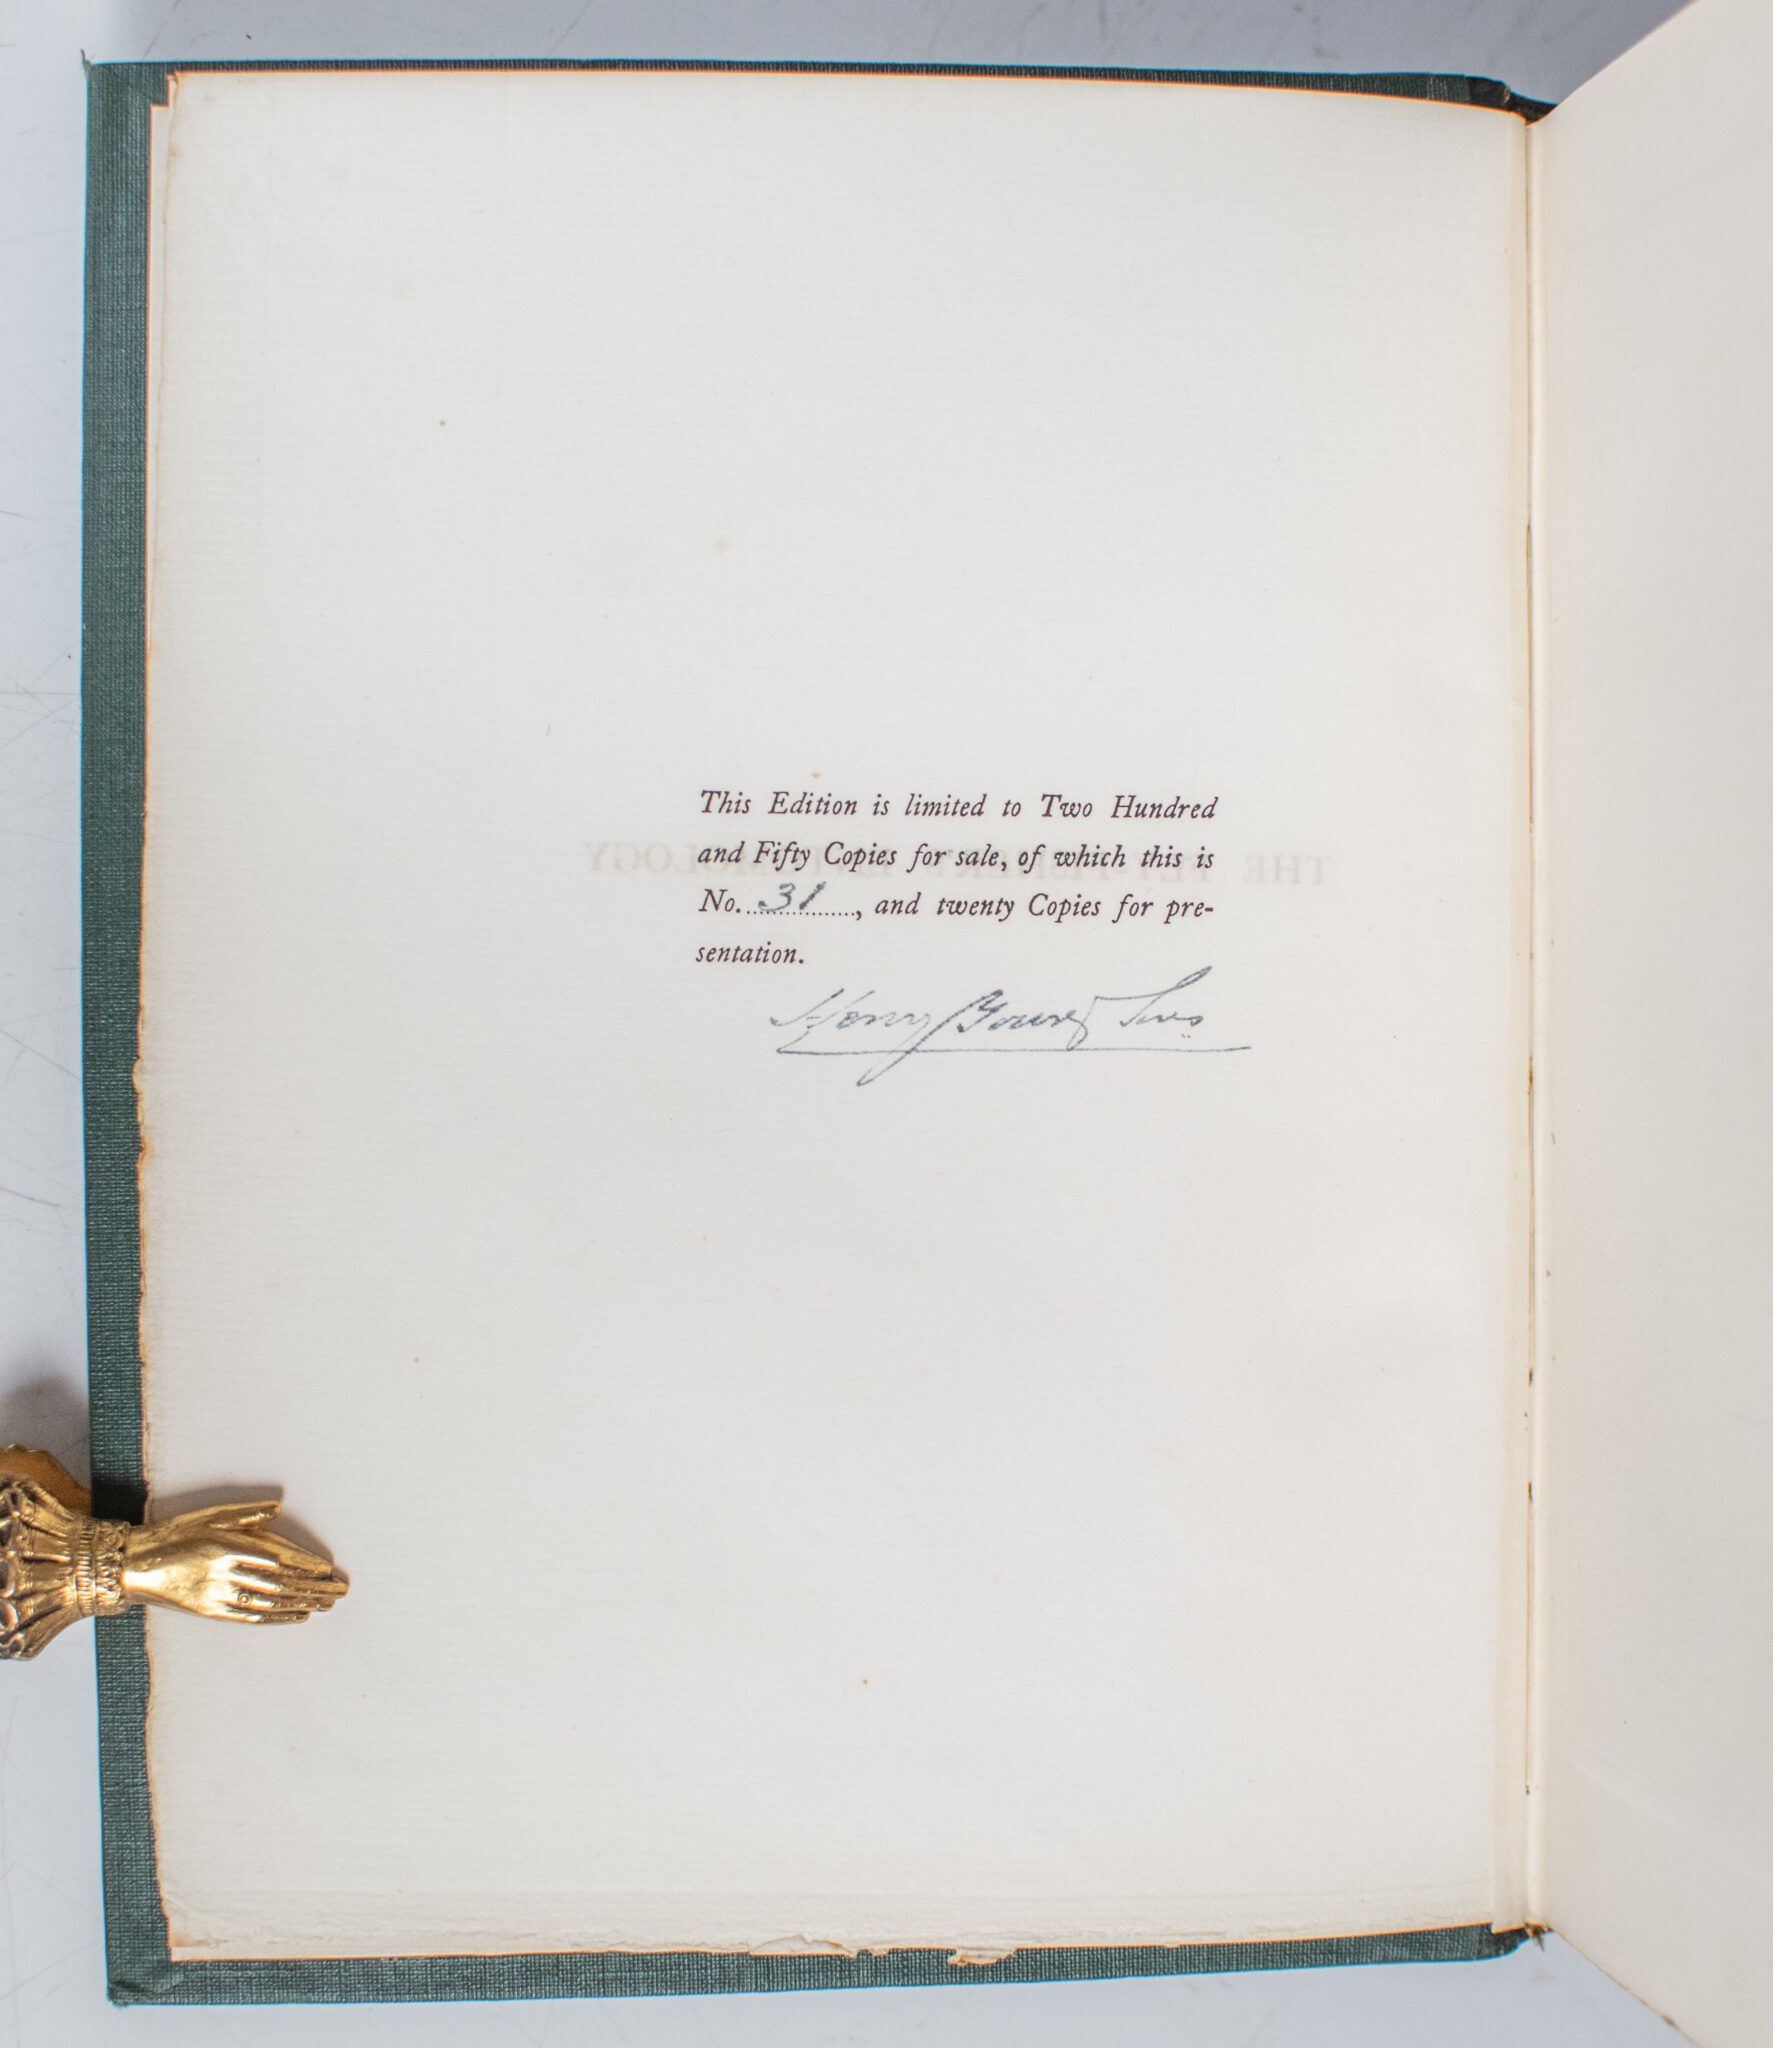 This Edition is limited to Two Hundred
and Fifty Copies for sale, of which this is
No. 31, and twenty Copies for pre-
sentation.
Henry